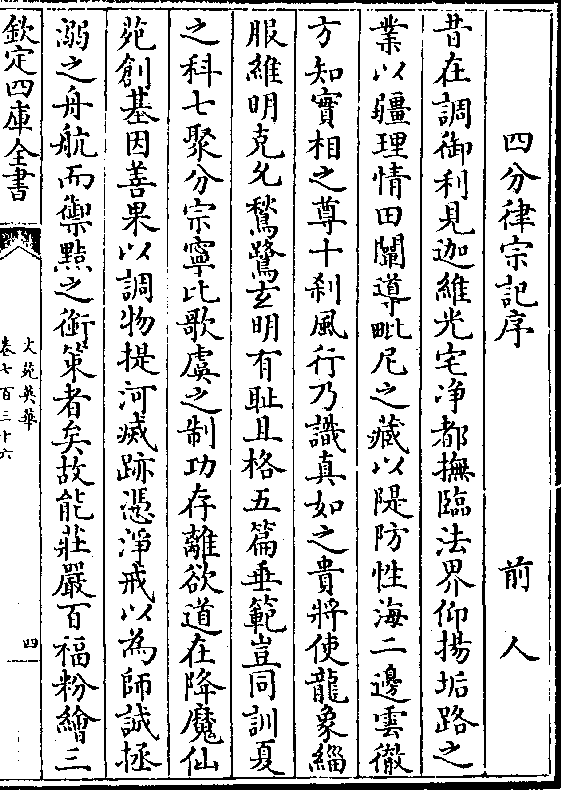 四分律宗記序 前人
昔在調御利見迦維光宅净都撫臨法界仰揚垢路之
業以疆理情田闢導毗尼之藏以隄防性海二邊雲徹
方知實相之尊十刹風行乃識真如之貴將使龍象緇
服維明克允鶖鷺玄明有耻且格五篇垂範豈同訓夏
之科七聚分宗寧比歌虞之制功存離欲道在降魔仙
苑創基因善果以調物提河滅跡憑淨戒以為師誠拯
溺之舟航而禦黠之銜策者矣故能莊嚴百福粉繪三
欽定四庫全書
文苑英華
卷七百三十六
四